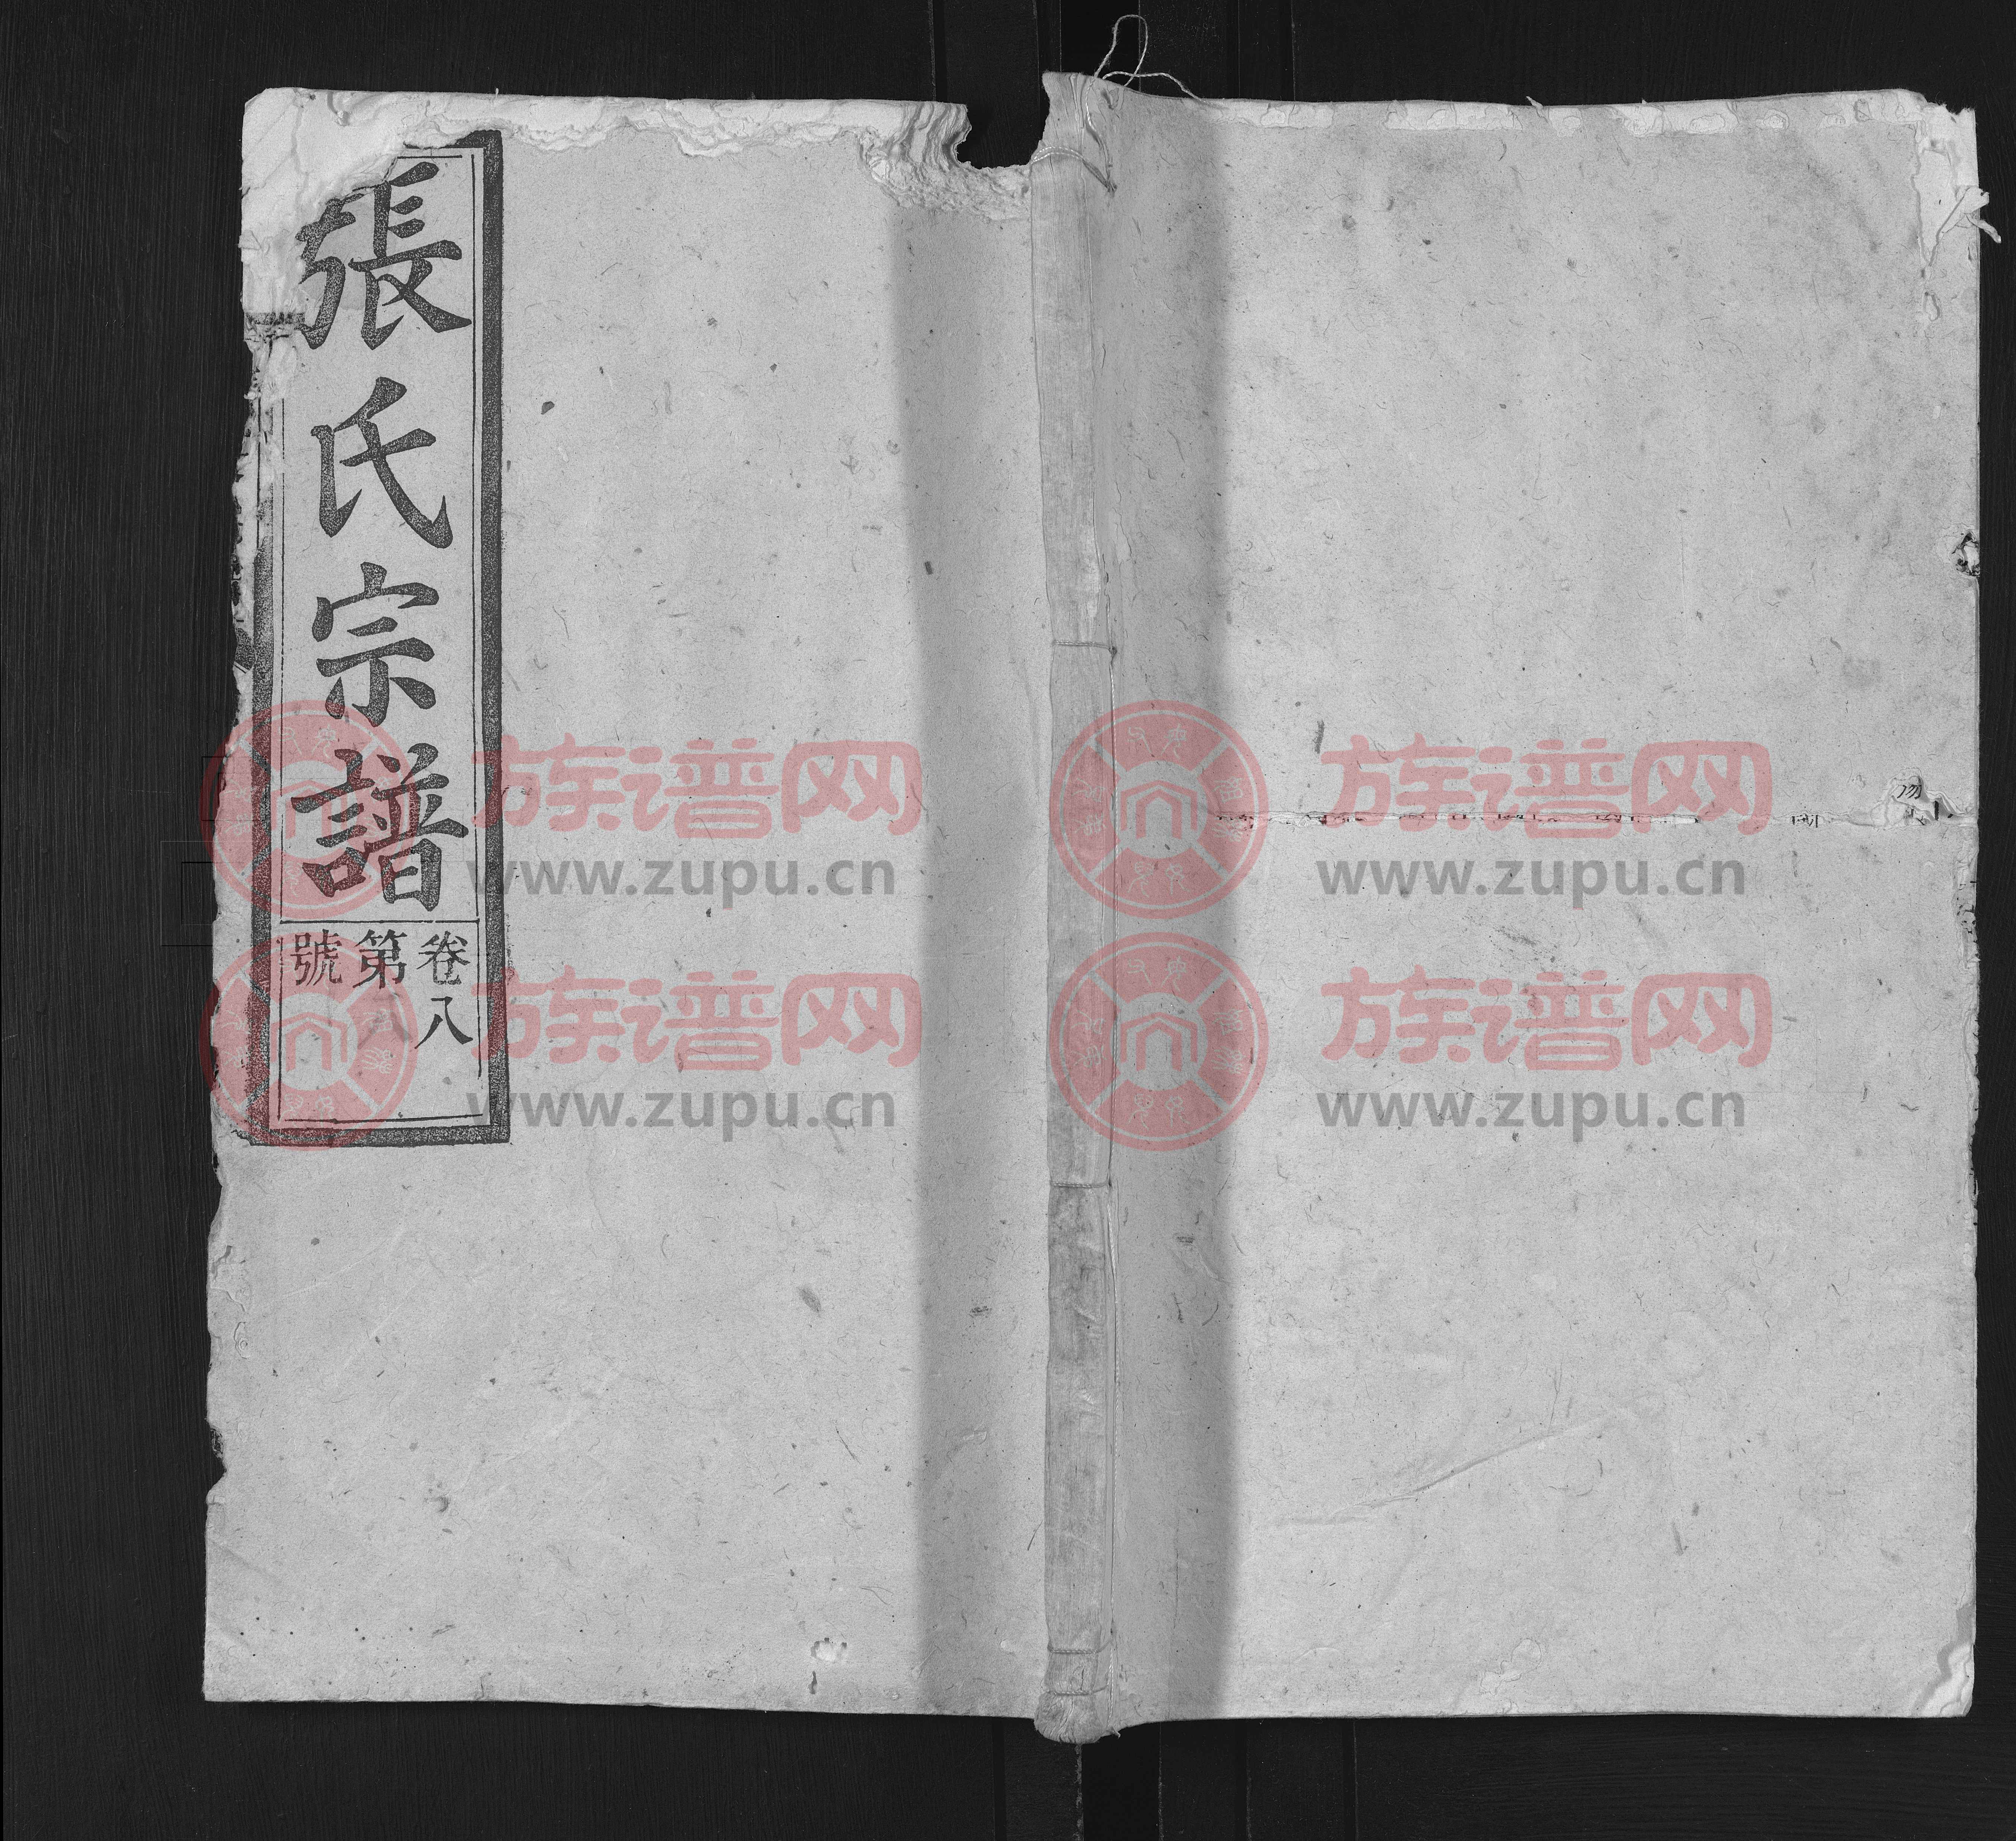 張氏宗譜
卷八
第八
號
族谱网
www.zupu.cn
族谱网
www.zupu.cn
族谱网
www.zupu.cn
族谱网
www.zupu.cn